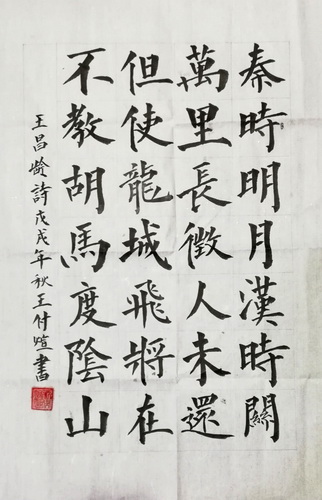 秦時明月漢時關
萬里長徵人未還
但使龍城飛將在
不教胡馬度陰山
王昌齡詩戊戌年秋王付煊書